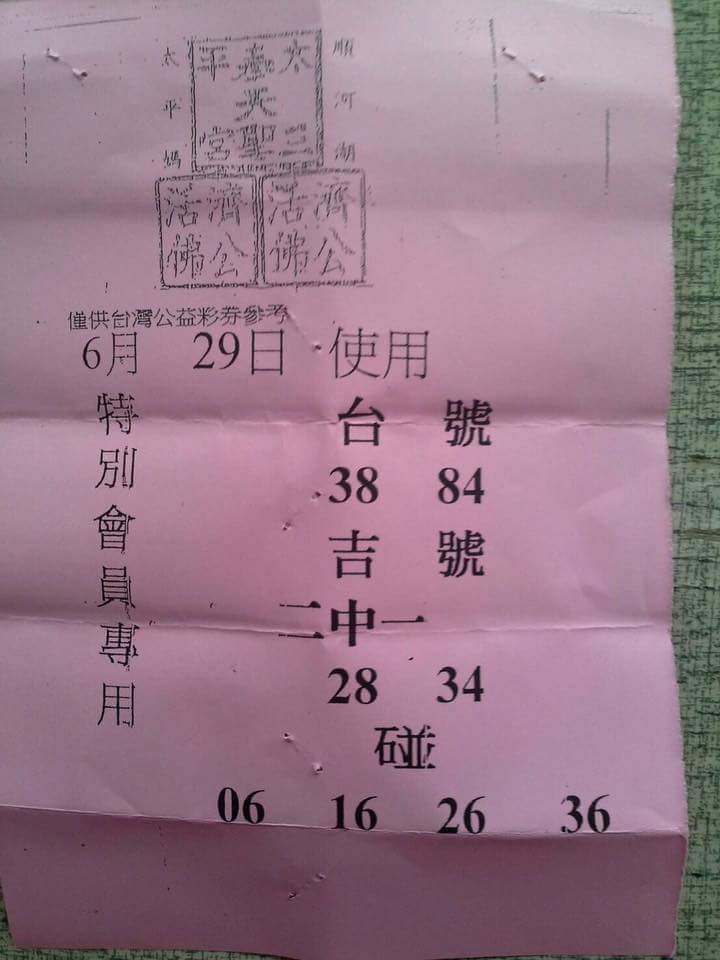 順河湖
三聖宮
太平媽
濟公活佛
濟公活佛
僅供台灣公益彩券參考
6月 29日 使用
特別會員專用
台 號
38 84
吉 號
二中一
28 34
碰
06 16 26 36